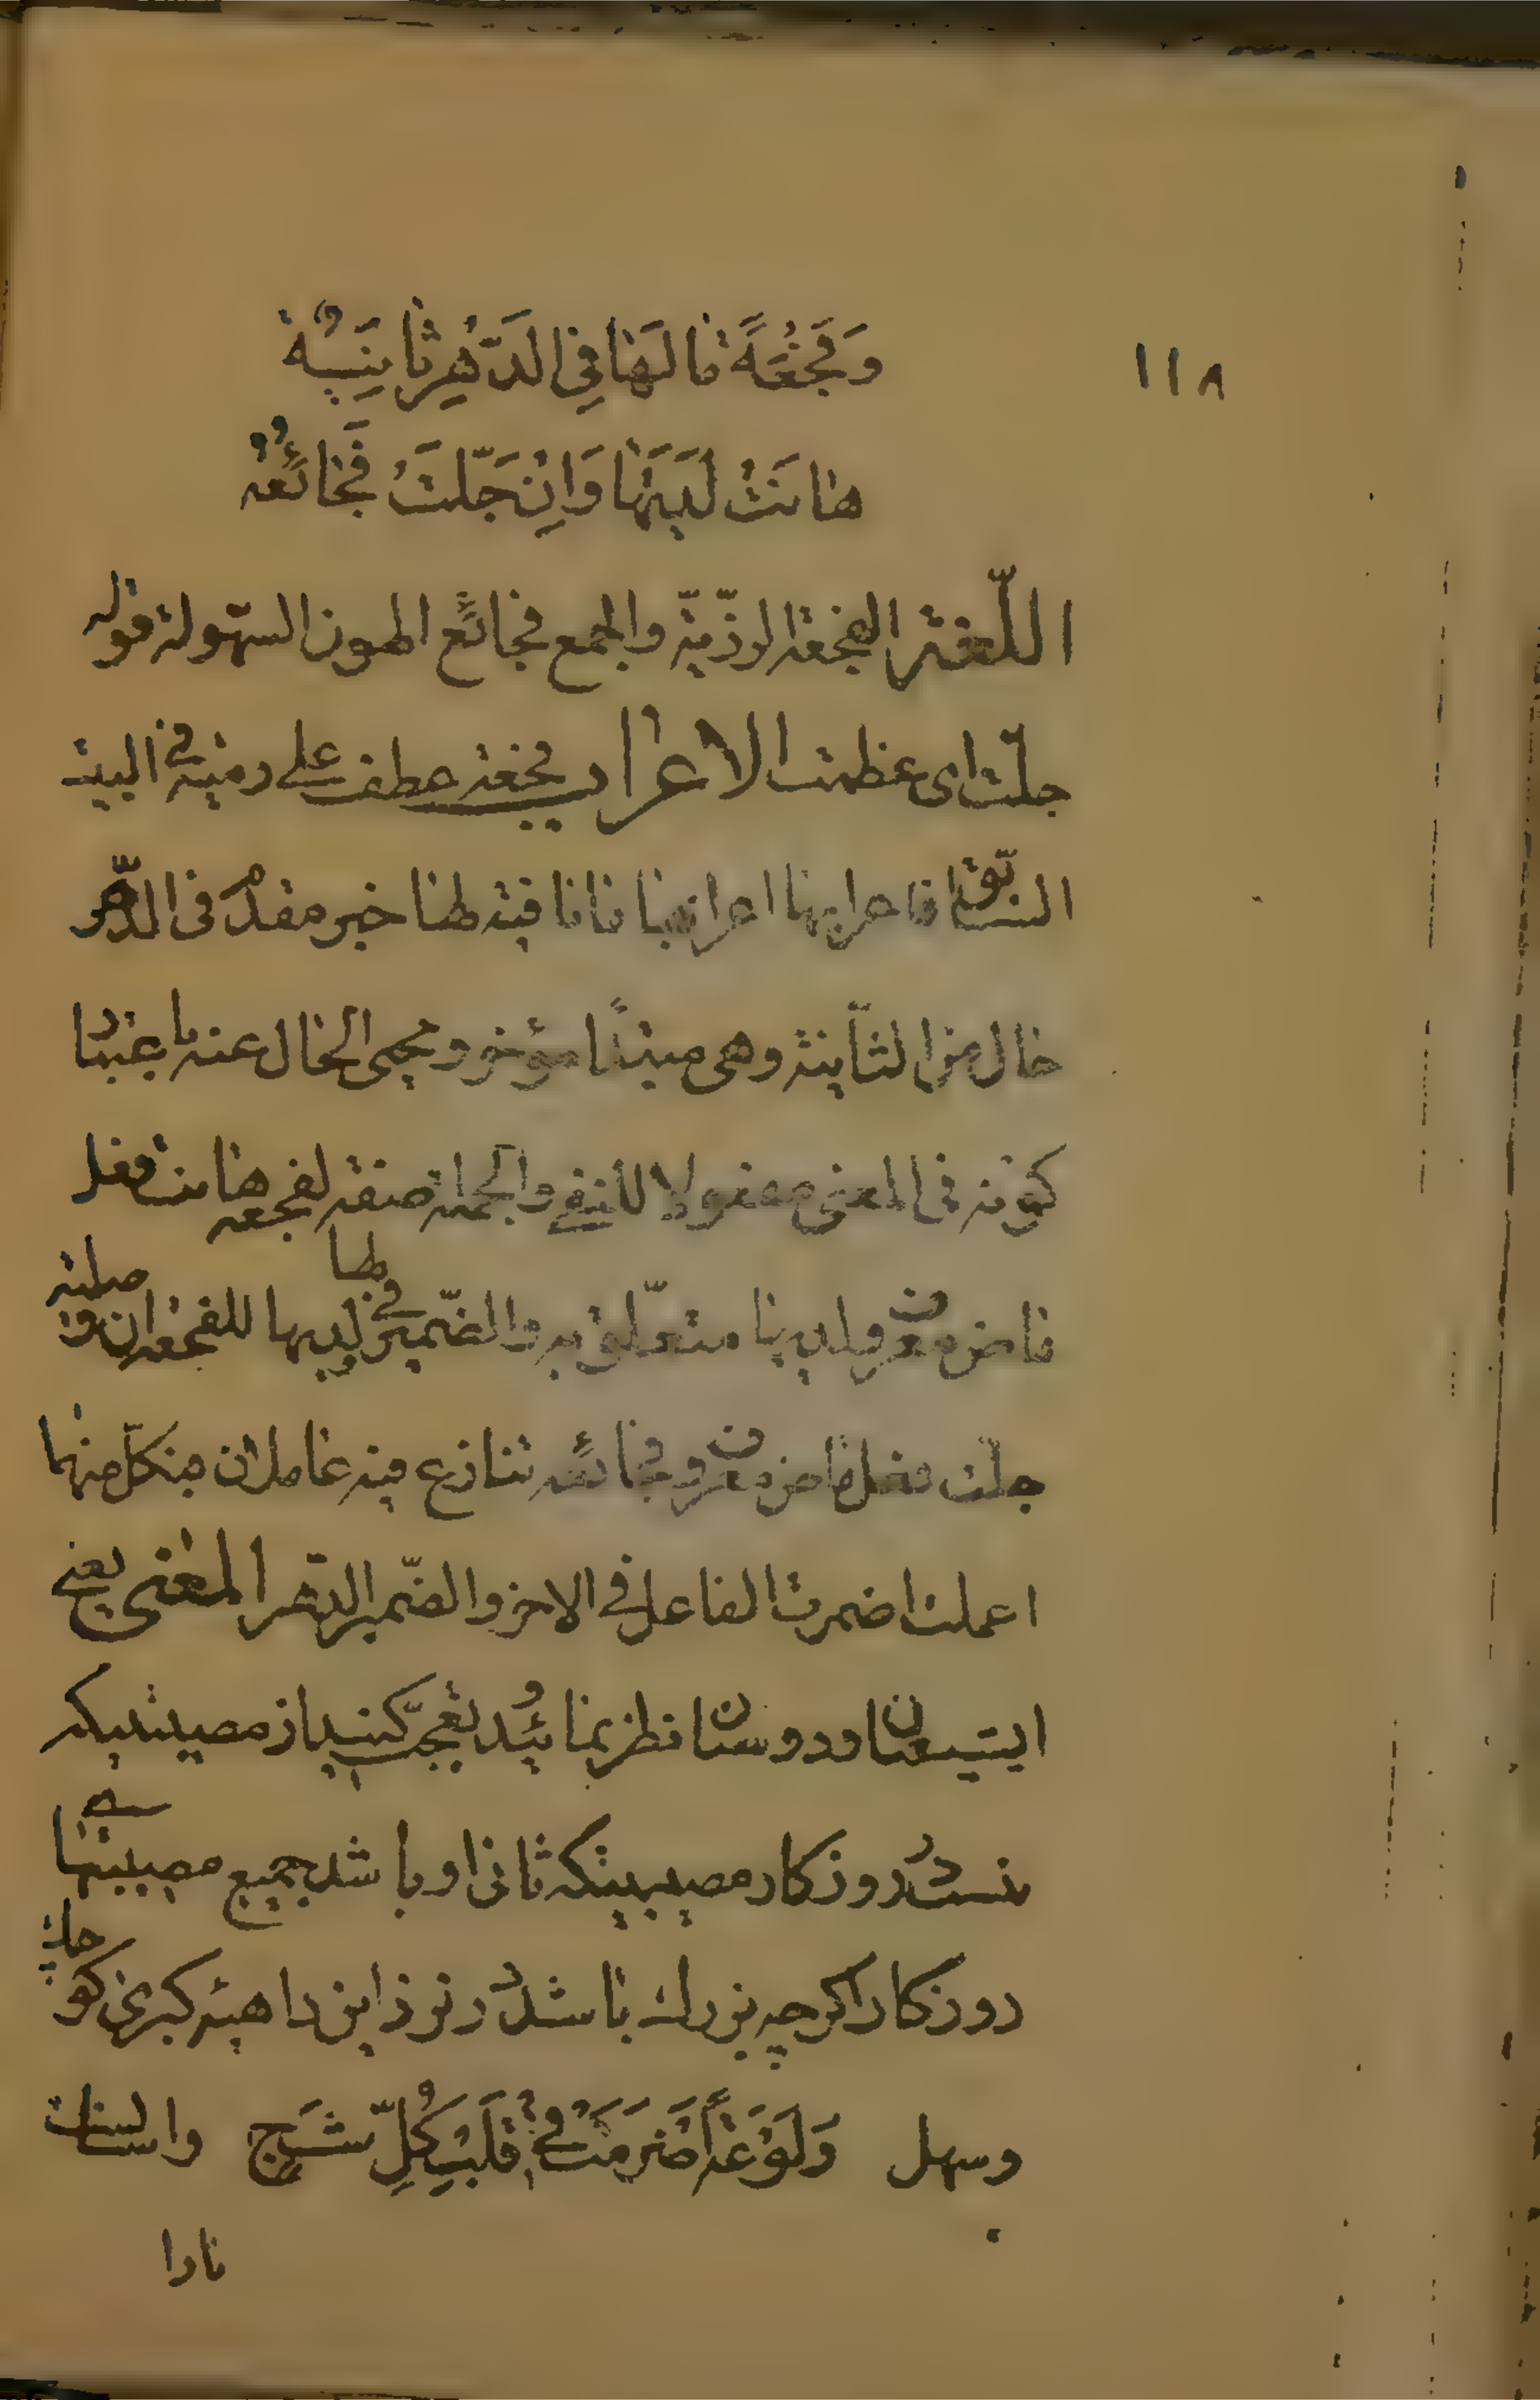 ١١٨
وَفَجْعَةً مالَها فِي الدَّهْرِ ثانِيَةٌ
هانَتْ لَدَيْها وَاِنْ جَلَّتْ فَجائِعُهُ
اللّغة الفجعة الرزيّة والجمع فجائع الهون السّهولة قوله
جلّت اى عظمت الاعراب فجعة عطف على رمية فى البيت
السّابق فاعرابها اعرابها ما نافية لها خبر مقدم فى الدّهر
حال من الثّانية وهى مبتدا مؤخر ومجىء الحال عنه باعتبار
كونه فى المعنى مفعولا للنفى والجملة صفة لفجعة هانت فعل
ماض معروف ولديها متعلّق به والضّمير فى لها ولديها للفجعة ان وصلية
جلّت فعل ماض معروف وفجائعه تنازع فيه عاملان فبكلّ منهما
اعملت اضمرت الفاعل فى الاخر والضّمير للدّهر المعنى يعنى
ايشيعيان ودوستان نظر نمائيد وتعجّب كنيد از مصيبتيكه
نيست در روزكار مصيبتيكه ثانى او باشد جميع مصيبتهاى
روزكار اكرچه بزرك باشد در نزد اين داهيه كبرى كوچك
وسهل وَلَوْعَةً اَضْرَمَتْ فى قَلْبِ كُلِّ شَجٍ واسالت
نارا